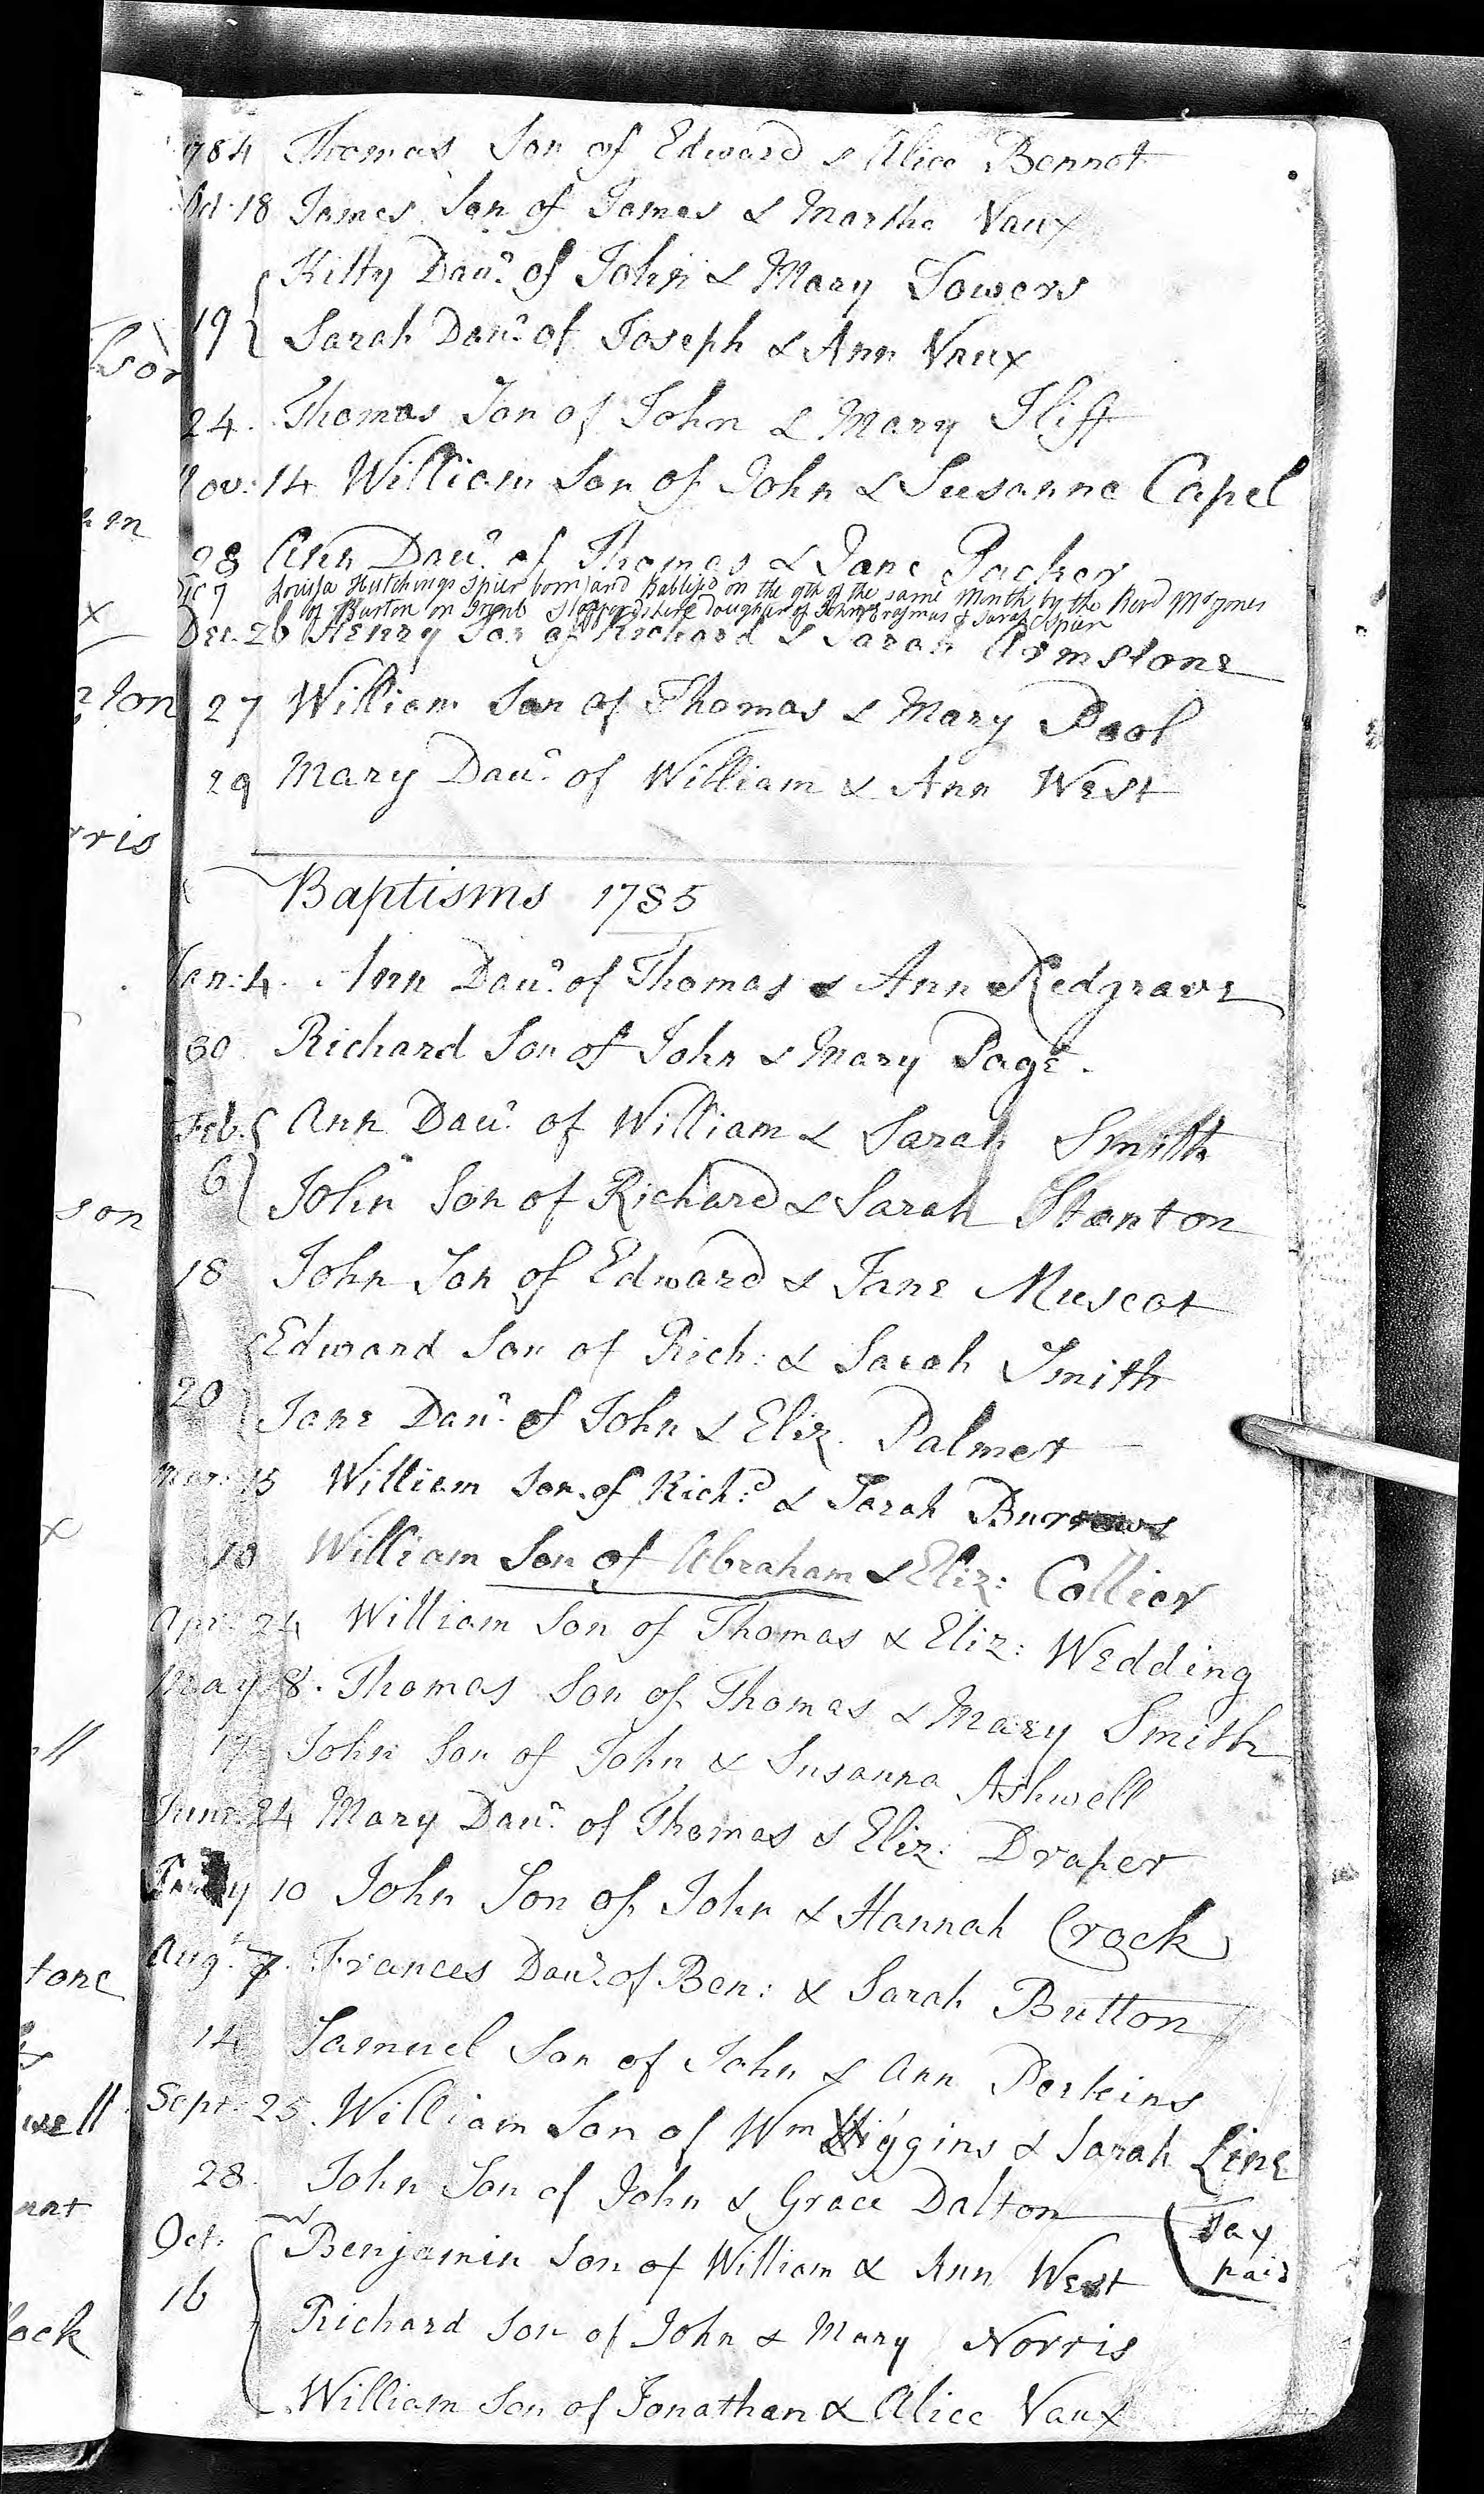 1784 Thomas Son of Edward & Alice Bennet
Oct. 18 James Son of James & Martha Vaux
Kitty Daur. of John & Mary Sowers
19 Sarah Daur. of Joseph & Ann Vaux
24. Thomas Son of John & Mary Iliff
Nov: 14 William Son of John & Susanna Capel
28 Ann Daur. of Thomas & Jane Packer
Dec 7 Louisa Hutchings Spier born and Babtised on the 9th of the same Month by the Revd Mr Jones
of Burton on Trent Staffordshire Daughter of John Erasmus & Sarah Spier
Dec. 26 Henry Son of Richard & Sarah Urmstone
27 William Son of Thomas & Mary Pool
29 Mary Daur. of William & Ann West
Baptisms 1785
Jan: 4. Ann Daur. of Thomas & Ann Redgrave
30 Richard Son of John & Mary Page.
Feb. Ann Daur. of William & Sarah Smith
6 John Son of Richard & Sarah Stanton
18 John Son of Edward & Jane Muscot
Edward Son of Rich: & Sarah Smith
20 Jane Daur. of John & Eliz. Palmer
Mar: 15 William Son of Richd. & Sarah Burrows
18 William Son of Abraham & Eliz: Collier
Apr: 24 William Son of Thomas & Eliz: Wedding
May 8. Thomas Son of Thomas & Mary Smith
17 John Son of John & Susanna Ashwell
June 24 Mary Daur. of Thomas & Eliz: Draper
July 10 John Son of John & Hannah Crock
Augt. 7. Frances Daur. of Ben: & Sarah Button
14 Samuel Son of John & Ann Perkins
Sept: 25. William Son of Wm Higgins & Sarah Line
28. John Son of John & Grace Dalton
Tax
paid
Oct. Benjamin Son of William & Ann West
16 Richard Son of John & Mary Norris
William Son of Jonathan & Alice Vaux